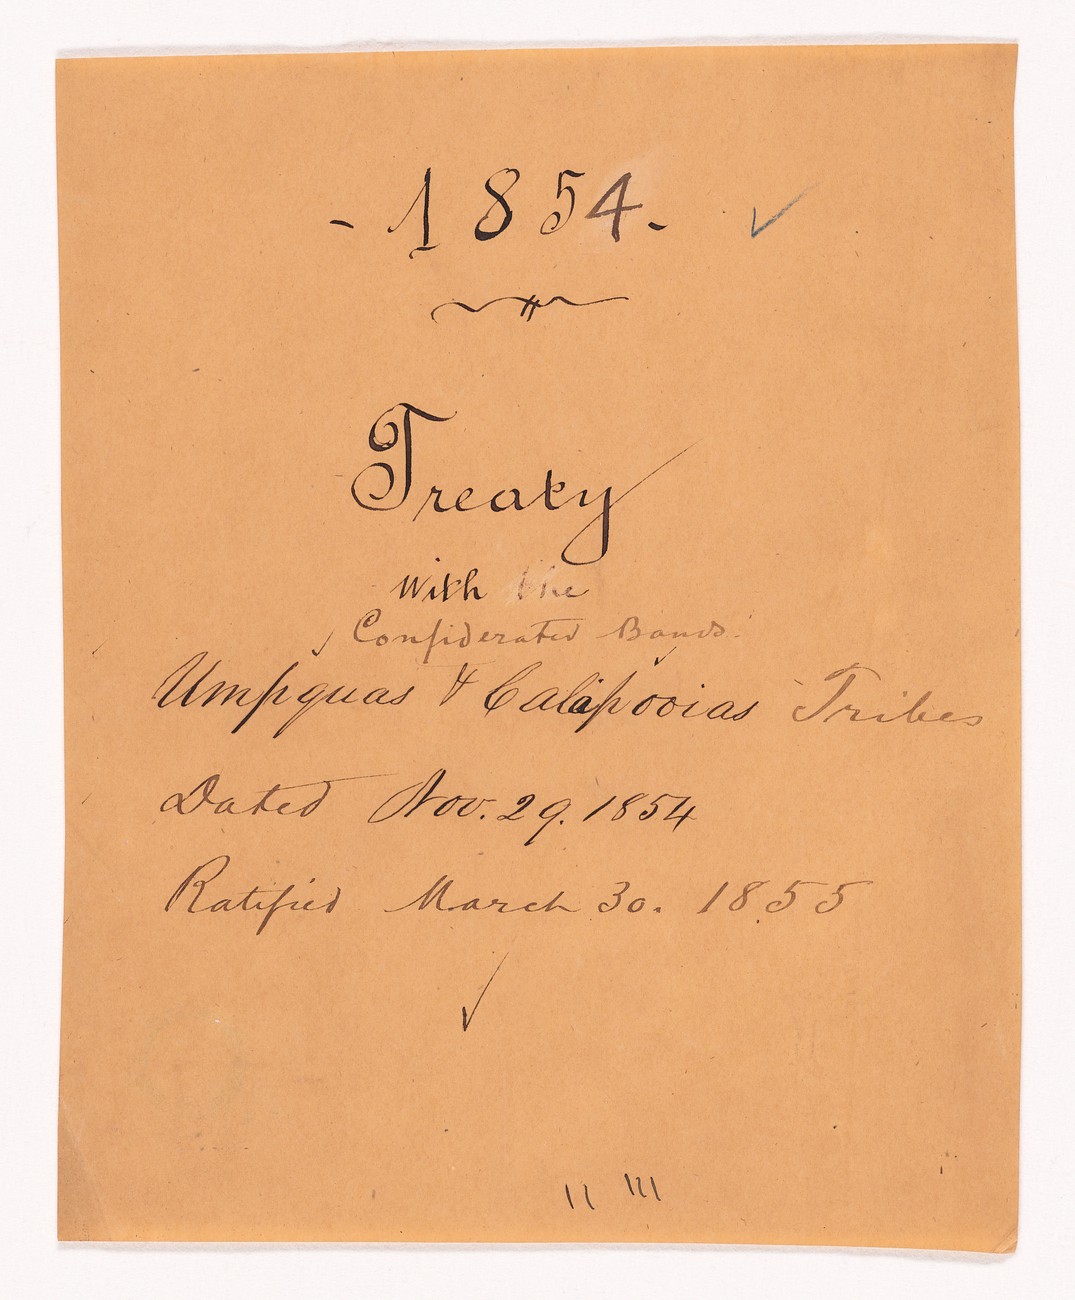 - 1854 -
Treaty
with the
Confiderated Bands.
Umpquas & Calapooias Tribes
Dated Nov. 29. 1854
Ratified March 30. 1855